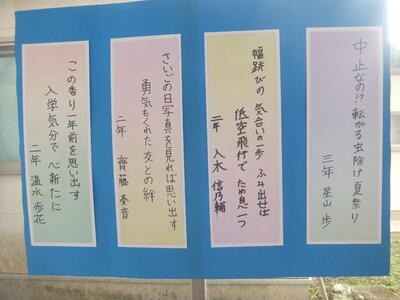 中止なの!? 転がる虫除け夏祭り
三年 星山 歩
幅跳びの 気合いの一歩 ふみ出せば
低空飛行で ため息一つ
三年 入木 信乃輔
さいごの日写真を見れば思い出す
勇気もくれた友との絆
二年 齊藤 奏音
この香り一年前を思い出す
入学気分で 心新たに
二年 温水 歩花